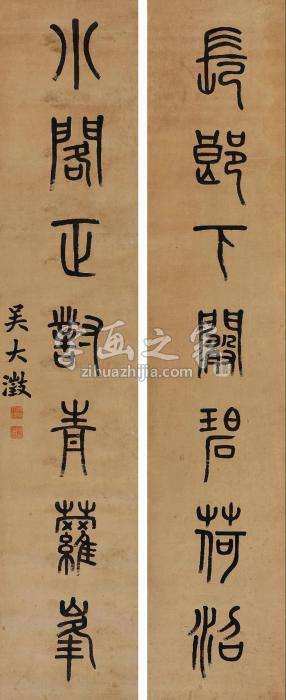 長郎下闞碧荷沼
小閣正對青蘿峯
吳大澂
字画之家
zihuazhijia.com